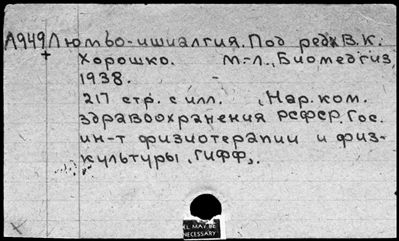 А949 Люмбо-ишиалгия. Под ред. В. К.
Хорошко. М.-Л., Биомедгиз,
1938.
217 стр. с илл. (Нар. ком.
здравоохранения РСФСР. Гос.
ин-т физиотерапии и физ-
культуры, ГИФФ).
MAY BE
NECESSARY